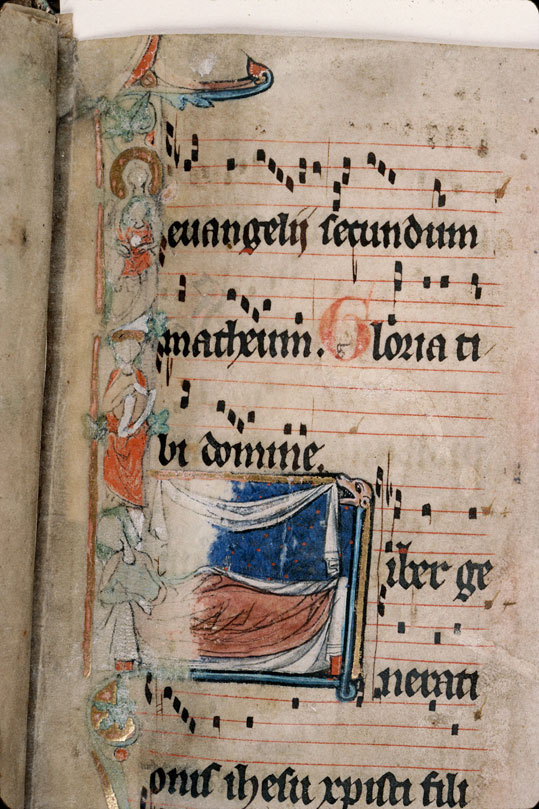 euangelij secundum
matheum. Gloria ti
bi domine.
iber ge
nerati
onis ihesu xpisti fili